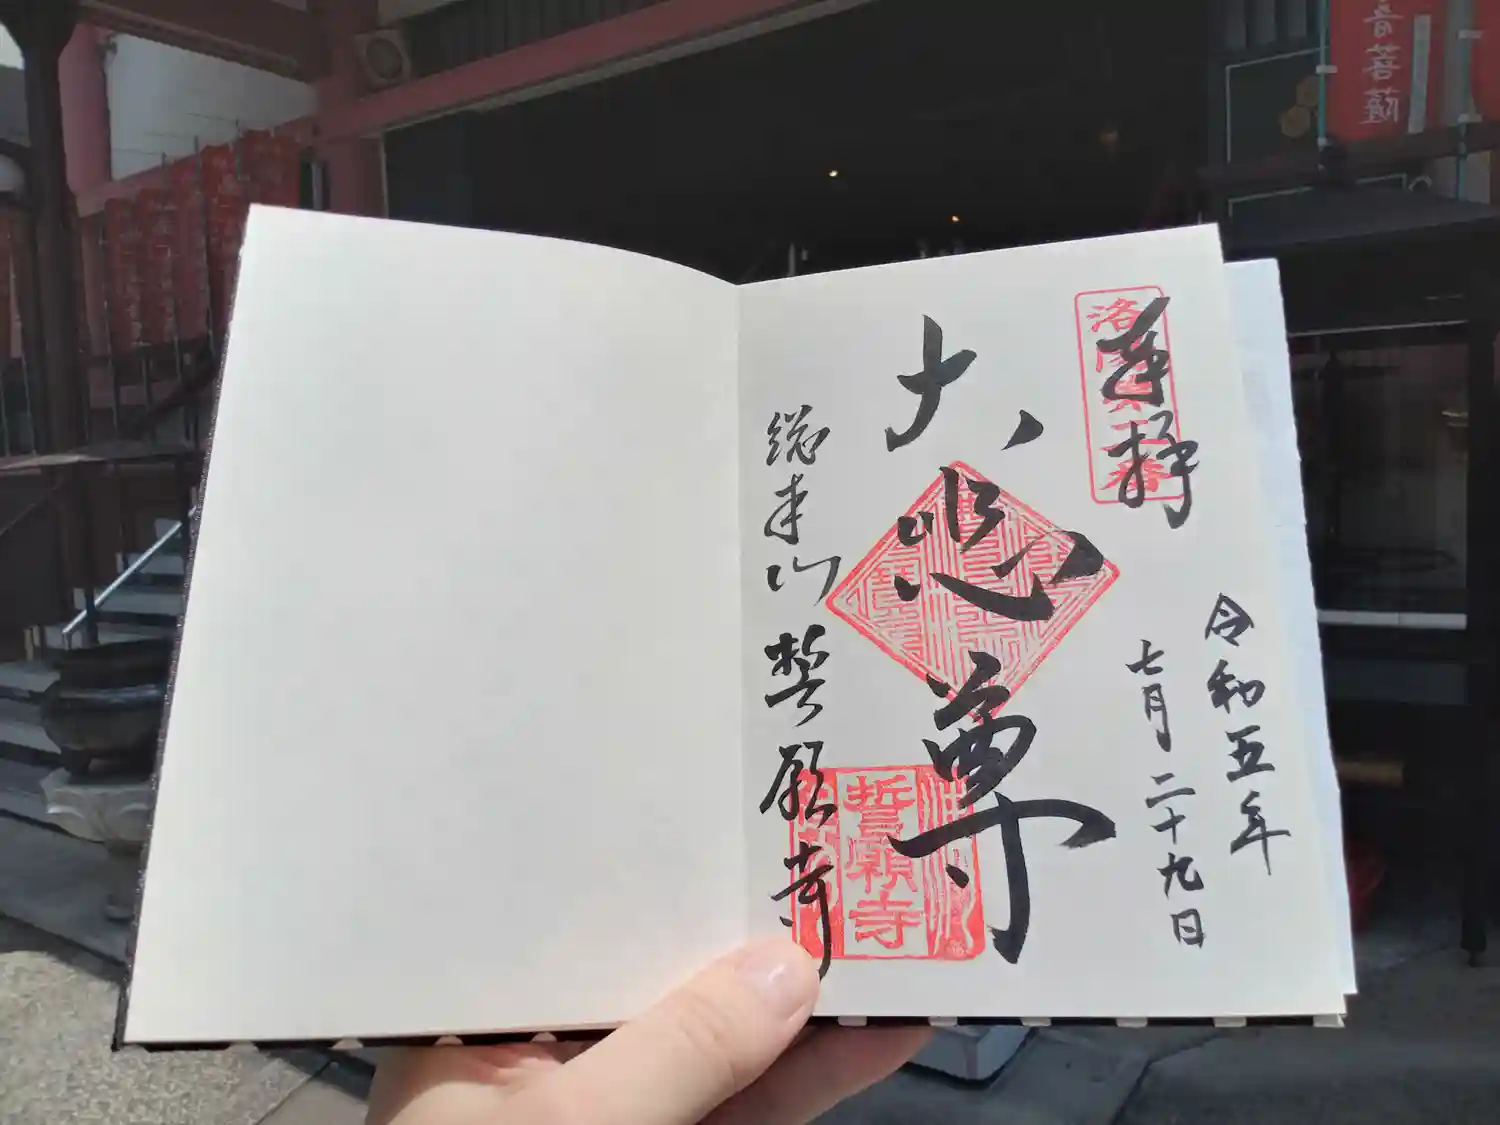 音菩薩
奉拝
洛陽第二番
令和五年
七月二十九日
大悲尊
総本山
誓願寺
誓願寺